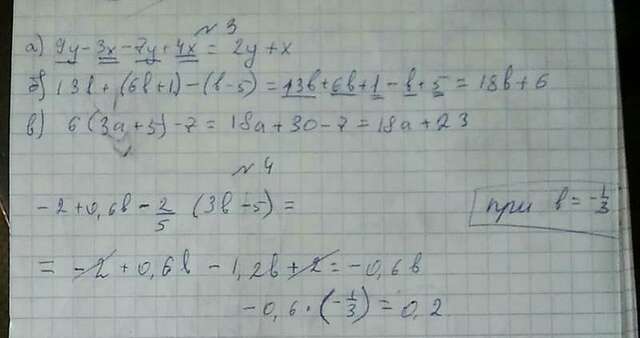 № 3
а) 9y - 3x - 7y + 4x = 2y + x
б) 13b + (6b+1) - (b-5) = 13b + 6b + 1 - b + 5 = 18b + 6
в) 6(3a+5) - 7 = 18a + 30 - 7 = 18a + 23
№ 4
-2 + 0,6b - 2/5 (3b - 5) =
при b = -1/3
= -2 + 0,6b - 1,2b + 2 = -0,6b
-0,6 · (-1/3) = 0,2